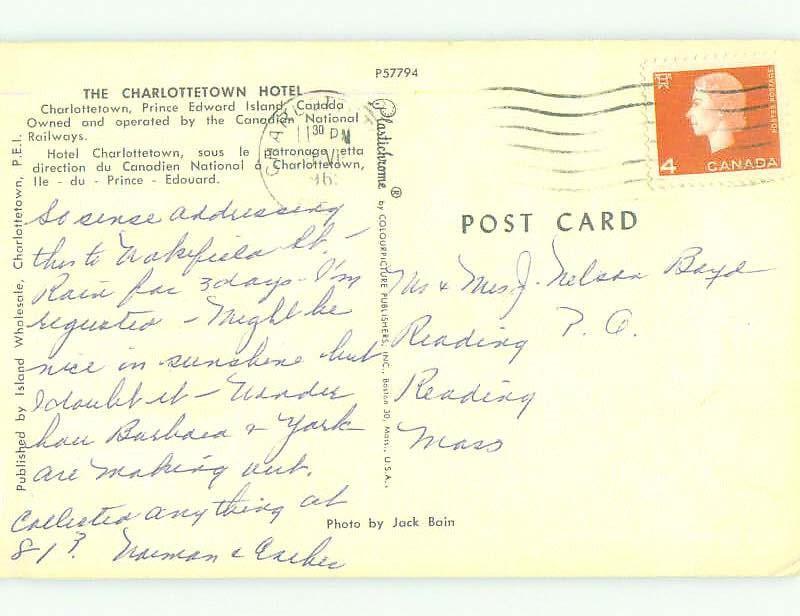 P57794
THE CHARLOTTETOWN HOTEL
Charlottetown, Prince Edward Island, Canada
Owned and operated by the Canadian National
Railways.
Hotel Charlottetown, sous le patronage etta
direction du Canadien National à Charlottetown,
Ile - du - Prince - Edouard.
11 30 PM
CANADA
4
POSTES POSTAGE
POST CARD
Plastichrome ®
by COLOURPICTURE PUBLISHERS, INC., Boston 30, Mass., U.S.A.
Published by Island Wholesale, Charlottetown, P.E.I.
So sense addressing
this to Wakefield St. -
Rain for 3 days - I'm
- Might be
nice in sunshine but
I doubt it - Wonder
how Barbara & York
are making out.
Collected anything at
81? Norman &
Mr & Mrs J. Nelson Boyd
Reading P. O.
Reading
Mass
Photo by Jack Bain